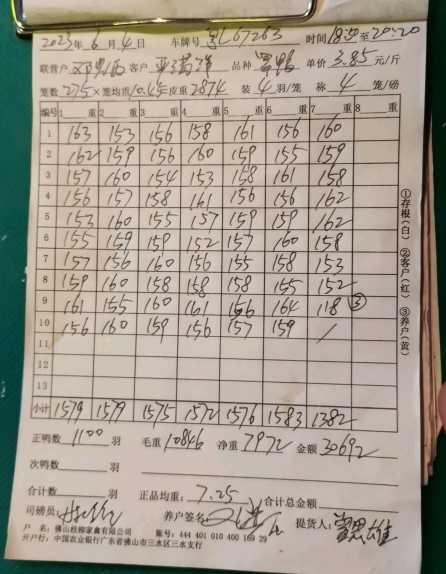 2023年6月4日 车牌号 L67263 时间18:50至20:20
联营户 客户 品种 鸭 单价 3.85元/斤
笼数275×笼均重10.45皮重2874 装4羽/笼 称4笼/磅
编号 1 重 2 重 3 重 4 重 5 重 6 重 7 重 8 重
1 163 153 156 158 161 156 160
2 162 159 156 160 159 155 159
3 157 160 154 153 158 161 158
4 156 157 158 161 156 156 162
5 153 160 155 157 159 159 162
6 155 159 159 152 157 160 158
7 157 156 160 156 155 158 153
8 159 160 158 158 158 155 152
9 161 155 160 161 156 164 118 ③
10 156 160 159 156 157 159 /
11
12
13
小计 1579 1579 1575 1572 1576 1583 1382
①存根(白) ②客户(红) ③养户(黄)
正鸭数 1100 羽 毛重 10846 净重 7972 金额 30692
次鸭数 羽
合计数 羽 正品均重: 7.25 合计总金额
司磅员: 养户签名: 提货人: 雄
户 名: 佛山桂柳家禽有限公司 账号: 444 401 010 400 169 29
开户行: 中国农业银行广东省佛山市三水区三水支行